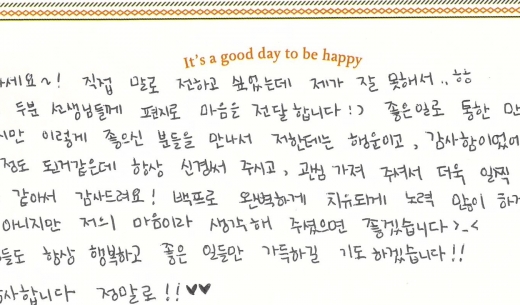 It's a good day to be happy
하세요~! 직접 말로 전하고 싶었는데 제가 잘 못해서.. ㅎㅎ
두분 선생님들께 편지로 마음을 전달합니다!:) 좋은일로 통한 만
지만 이렇게 좋으신 분들을 만나서 저한테는 행운이고, 감사함이었어
정도 된거같은데 항상 신경써 주시고, 관심 가져 주셔서 더욱 일찍
같아서 감사드려요! 백프로 완벽하게 치유되게 노력 많이 하
아니지만 저의 마음이라 생각해 주셨으면 좋겠습니다>_<
들도 항상 행복하고 좋은 일들만 가득하길 기도 하겠습니다!!
감사합니다 정말로!!♥♥